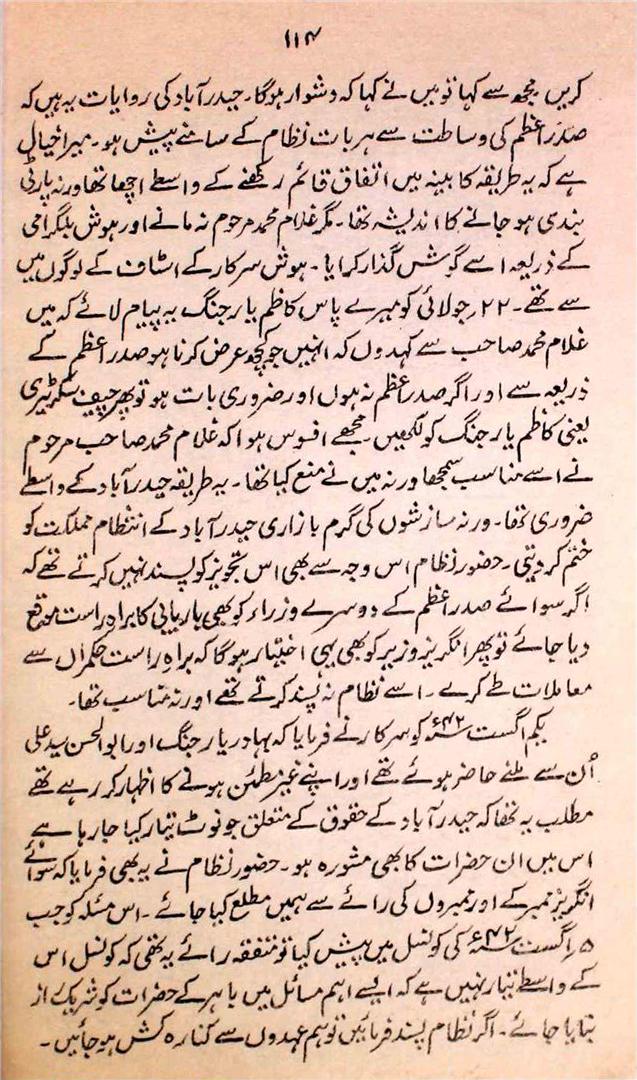 ۱۱۴
کریں مجھ سے کہا تو میں نے کہا کہ دشوار ہوگا۔ حیدرآباد کی روایات یہ ہیں کہ
صدر اعظم کی وساطت سے ہر بات نظام کے سامنے پیش ہو۔ میرا خیال
ہے کہ یہ طریقہ کابینہ میں اتفاق قائم رکھنے کے واسطے اچھا تھا ورنہ پارٹی
بندی ہو جانے کا اندیشہ تھا۔ مگر غلام محمد مرحوم نہ مانے اور ہوش بلگرامی
کے ذریعہ اسے گوش گذار کرایا۔ ہوش سرکار کے اسٹاف کے لوگوں میں
سے تھے۔ ۲۲؍ جولائی کو میرے پاس کاظم یار جنگ یہ پیام لائے کہ میں
غلام محمد صاحب سے کہدوں کہ انہیں جو کچھ عرض کرنا ہو صدر اعظم کے
ذریعہ سے اور اگر صدر اعظم نہ ہوں اور ضروری بات ہو تو پھر چیف سکرٹیری
یعنی کاظم یار جنگ کو لکھیں۔ مجھے افسوس ہوا کہ غلام محمد صاحب مرحوم
نے اسے مناسب سمجھا ورنہ میں نے منع کیا تھا۔ یہ طریقہ حیدرآباد کے واسطے
ضروری تھا۔ ورنہ سازشوں کی گرم بازاری حیدرآباد کے انتظام مملکت کو
ختم کر دیتی۔ حضور نظام اس وجہ سے بھی اس تجویز کو پسند نہیں کرتے تھے کہ
اگر سوائے صدر اعظم کے دوسرے وزراء کو بھی باریابی کا براہ راست موقع
دیا جائے تو پھر انگریز وزیر کو بھی یہی اختیار ہوگا کہ براہ راست حکمراں سے
معاملات طے کرے۔ اسے نظام نہ پسند کرتے تھے اور نہ مناسب تھا۔
یکم اگست ۴۲ء کو سرکار نے فرمایا کہ بہادر یار جنگ اور ابوالحسن سید علی
اُن سے ملنے حاضر ہوئے تھے اور اپنے غیر مطمئن ہونے کا اظہار کر رہے تھے
مطلب یہ تھا کہ حیدرآباد کے حقوق کے متعلق جو نوٹ تیار کیا جا رہا ہے
اس میں ان حضرات کا بھی مشورہ ہو۔ حضور نظام نے یہ بھی فرمایا کہ سوائے
انگریز ممبر کے اور ممبروں کی رائے سے ہمیں مطلع کیا جائے۔ اس مسئلہ کو جب
۵؍ اگست ۴۲ء کی کونسل میں پیش کیا تو متفقہ رائے یہ تھی کہ کونسل اس
کے واسطے تیار نہیں ہے کہ ایسے اہم مسائل میں باہر کے حضرات کو شریک راز
بنایا جائے۔ اگر نظام پسند فرمائیں تو ہم عہدوں سے کنارہ کش ہو جائیں۔